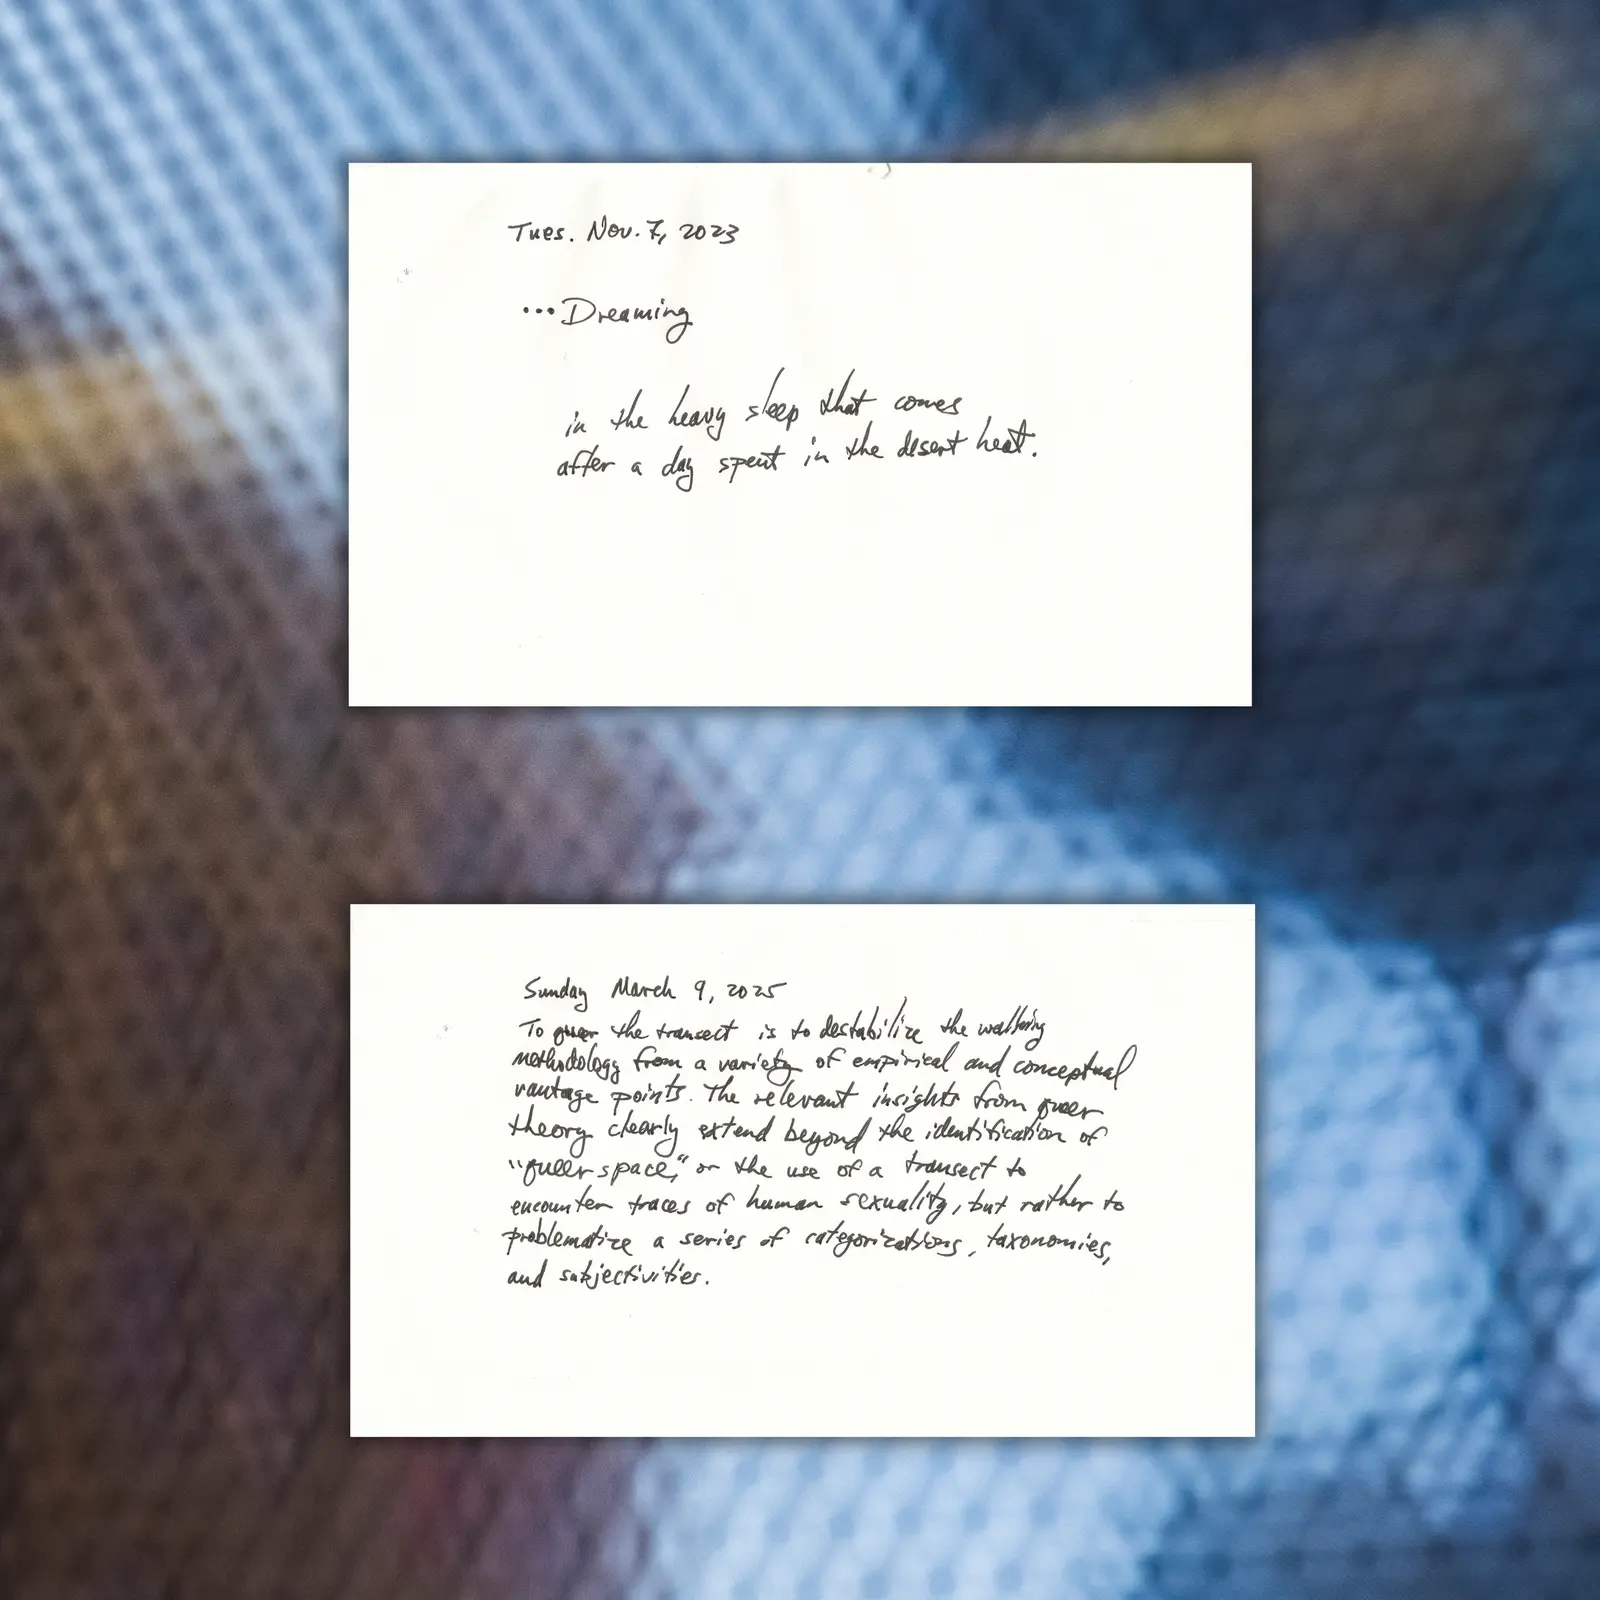 Tues. Nov. 7, 2023
...Dreaming
in the heavy sleep that comes
after a day spent in the desert heat.
Sunday March 9, 2025
To queer the transect is to destabilize the walking
methodology from a variety of empirical and conceptual
vantage points. The relevant insights from queer
theory clearly extend beyond the identification of
"queer space," or the use of a transect to
encounter traces of human sexuality, but rather to
problematize a series of categorizations, taxonomies,
and subjectivities.